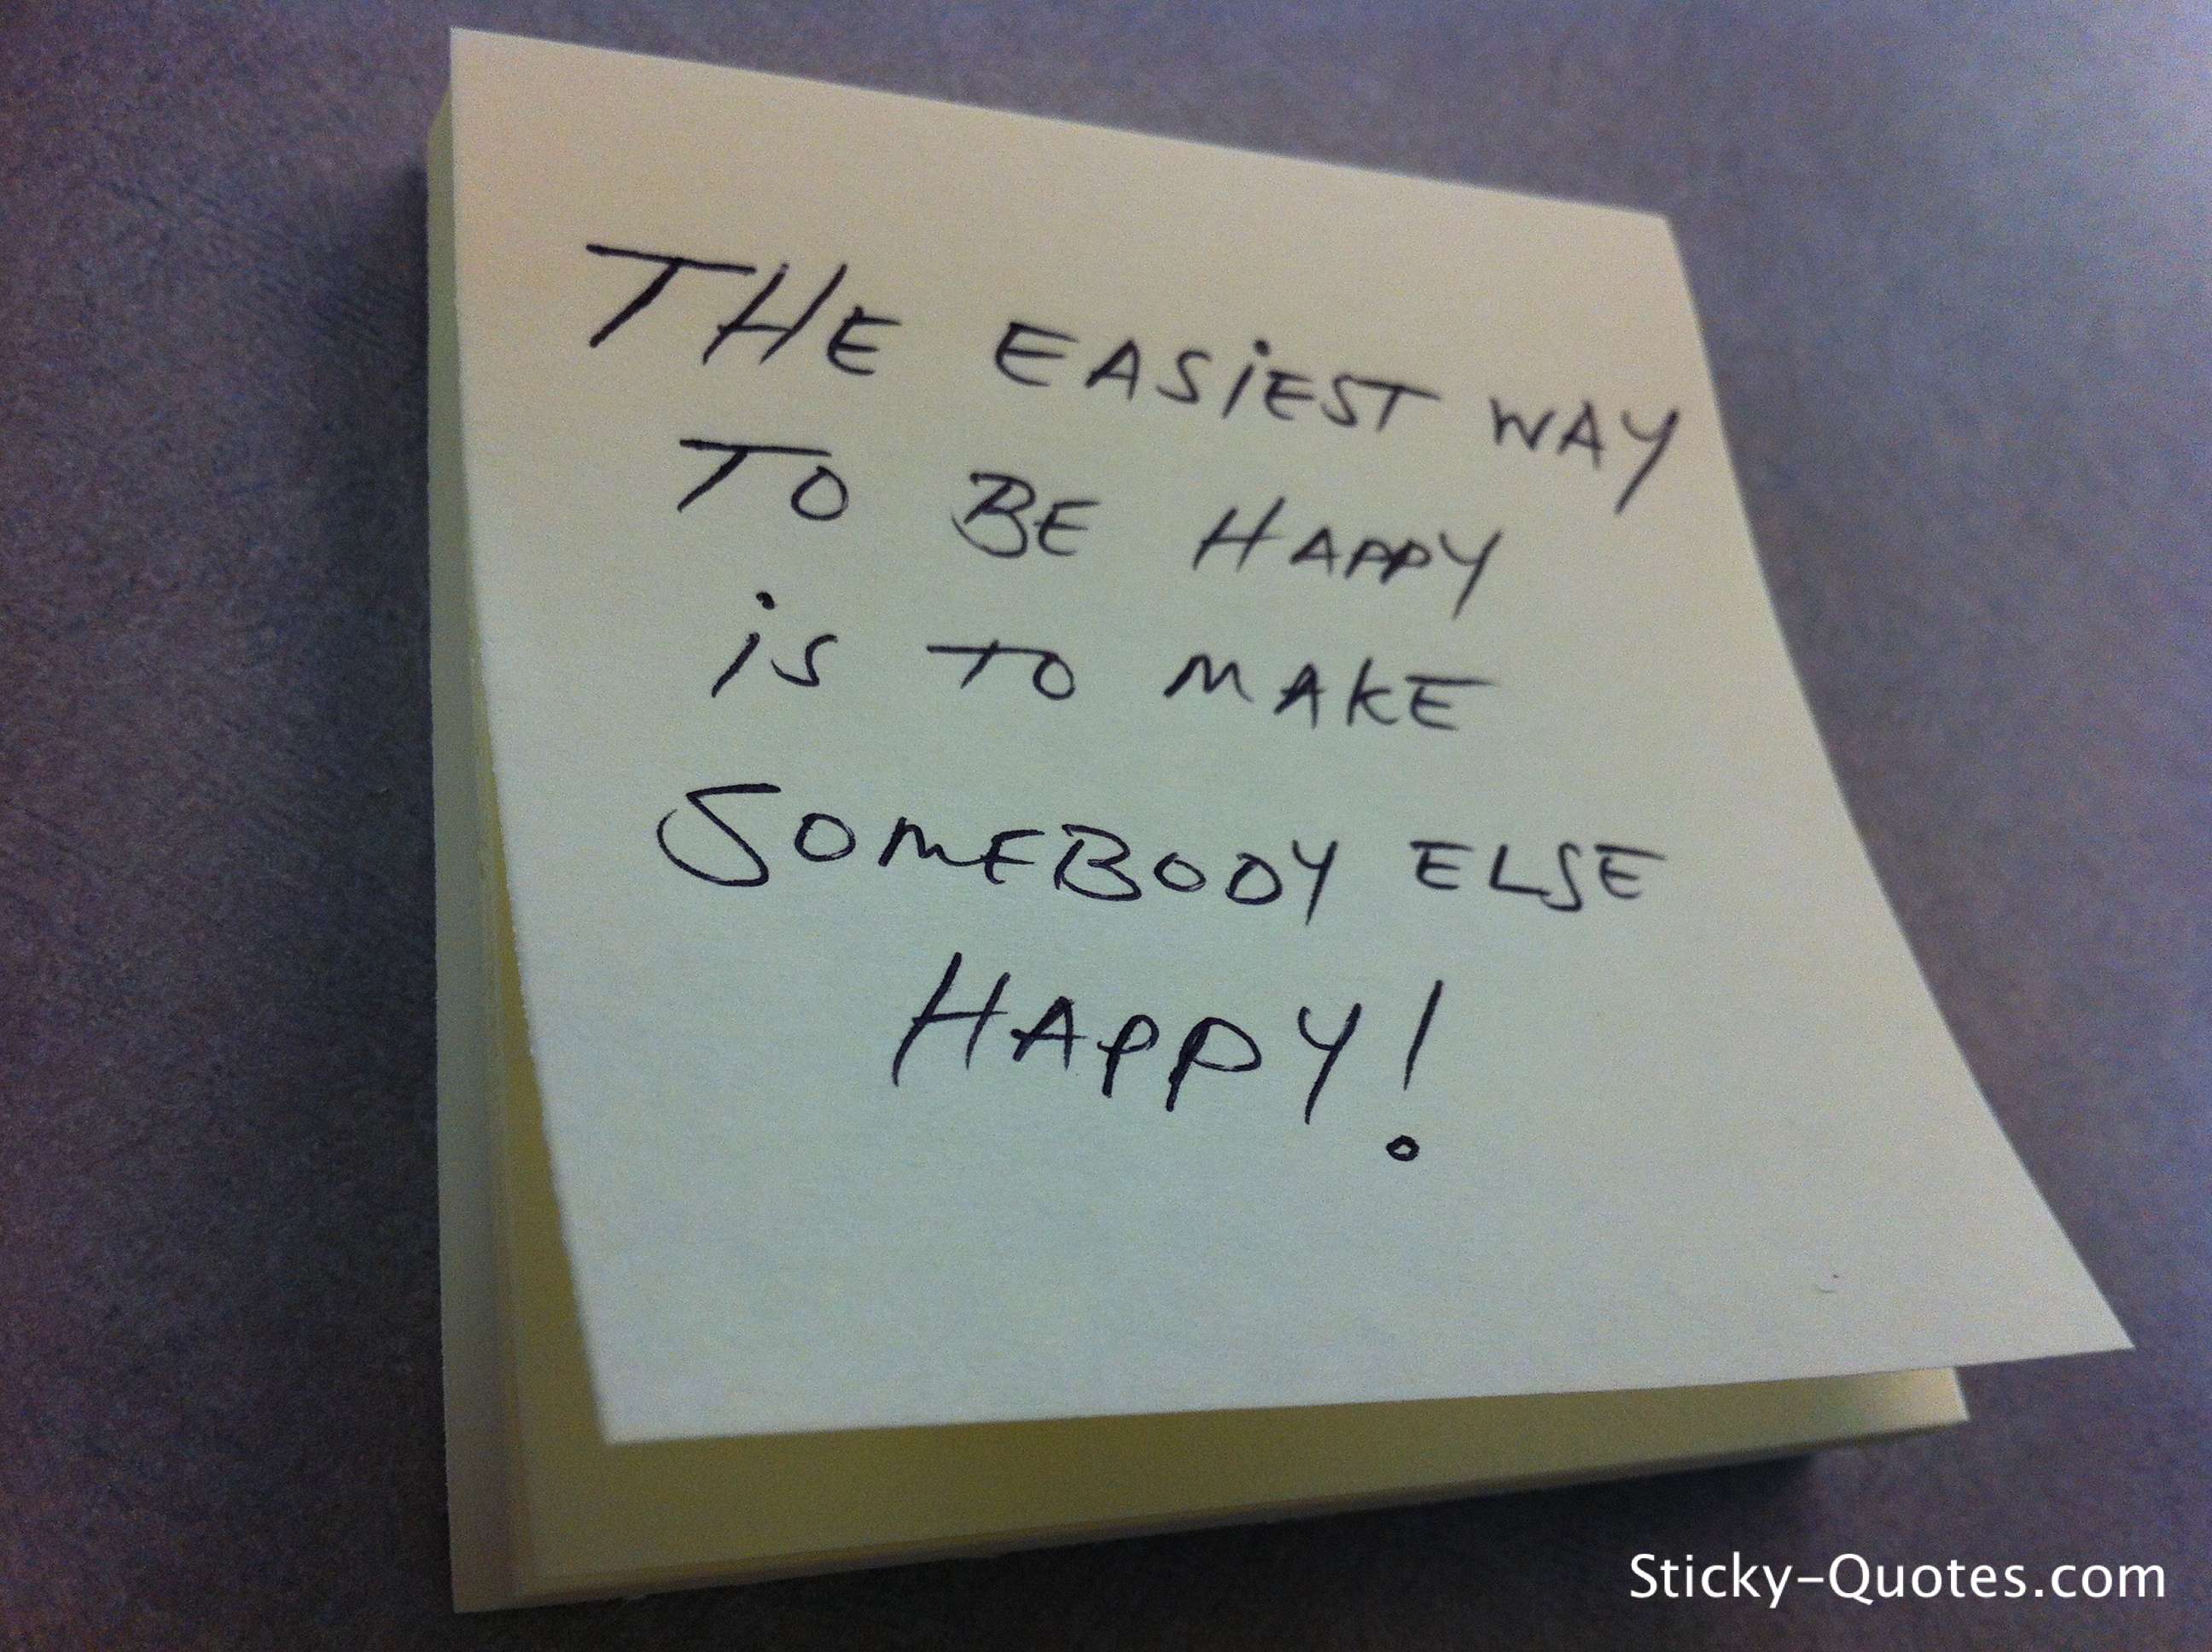 THE EASiEST WAY
TO BE HAPPY
iS TO MAKE
SOMEBODY ELSE
HAPPY!
Sticky-Quotes.com